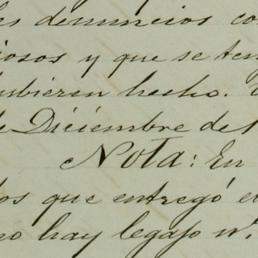 es denuncios co
iosos y que se ten
hubieran hecho.
de Diciembre de 1
Nota: En
los que entregó el
no hay legajo nº.